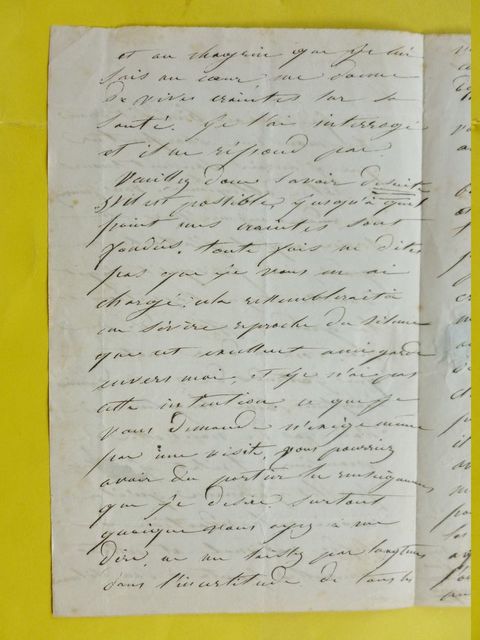 et au chagrin que je lui
sais au cœur, me donne
de vives craintes sur sa
santé. Je l'ai interrogé
et il ne répond pas.
Veuillez donc savoir de suite
S'il est possible, jusqu'à quel
point mes craintes sont
fondées. toute fois ne dites
pas que je vous en ai
chargé; cela ressemblerait à
un sévère reproche du silence
que cet excellent ami garde
envers moi, et je n'ai pas
cette intention. ce que je
vous demande n'exige même
pas une visite, vous pourriez
avoir du portier les renseignemens
que je désire. surtout
quoique vous ayez à me
dire, ne me laissez pas longtems
dans l'incertitude de tous les